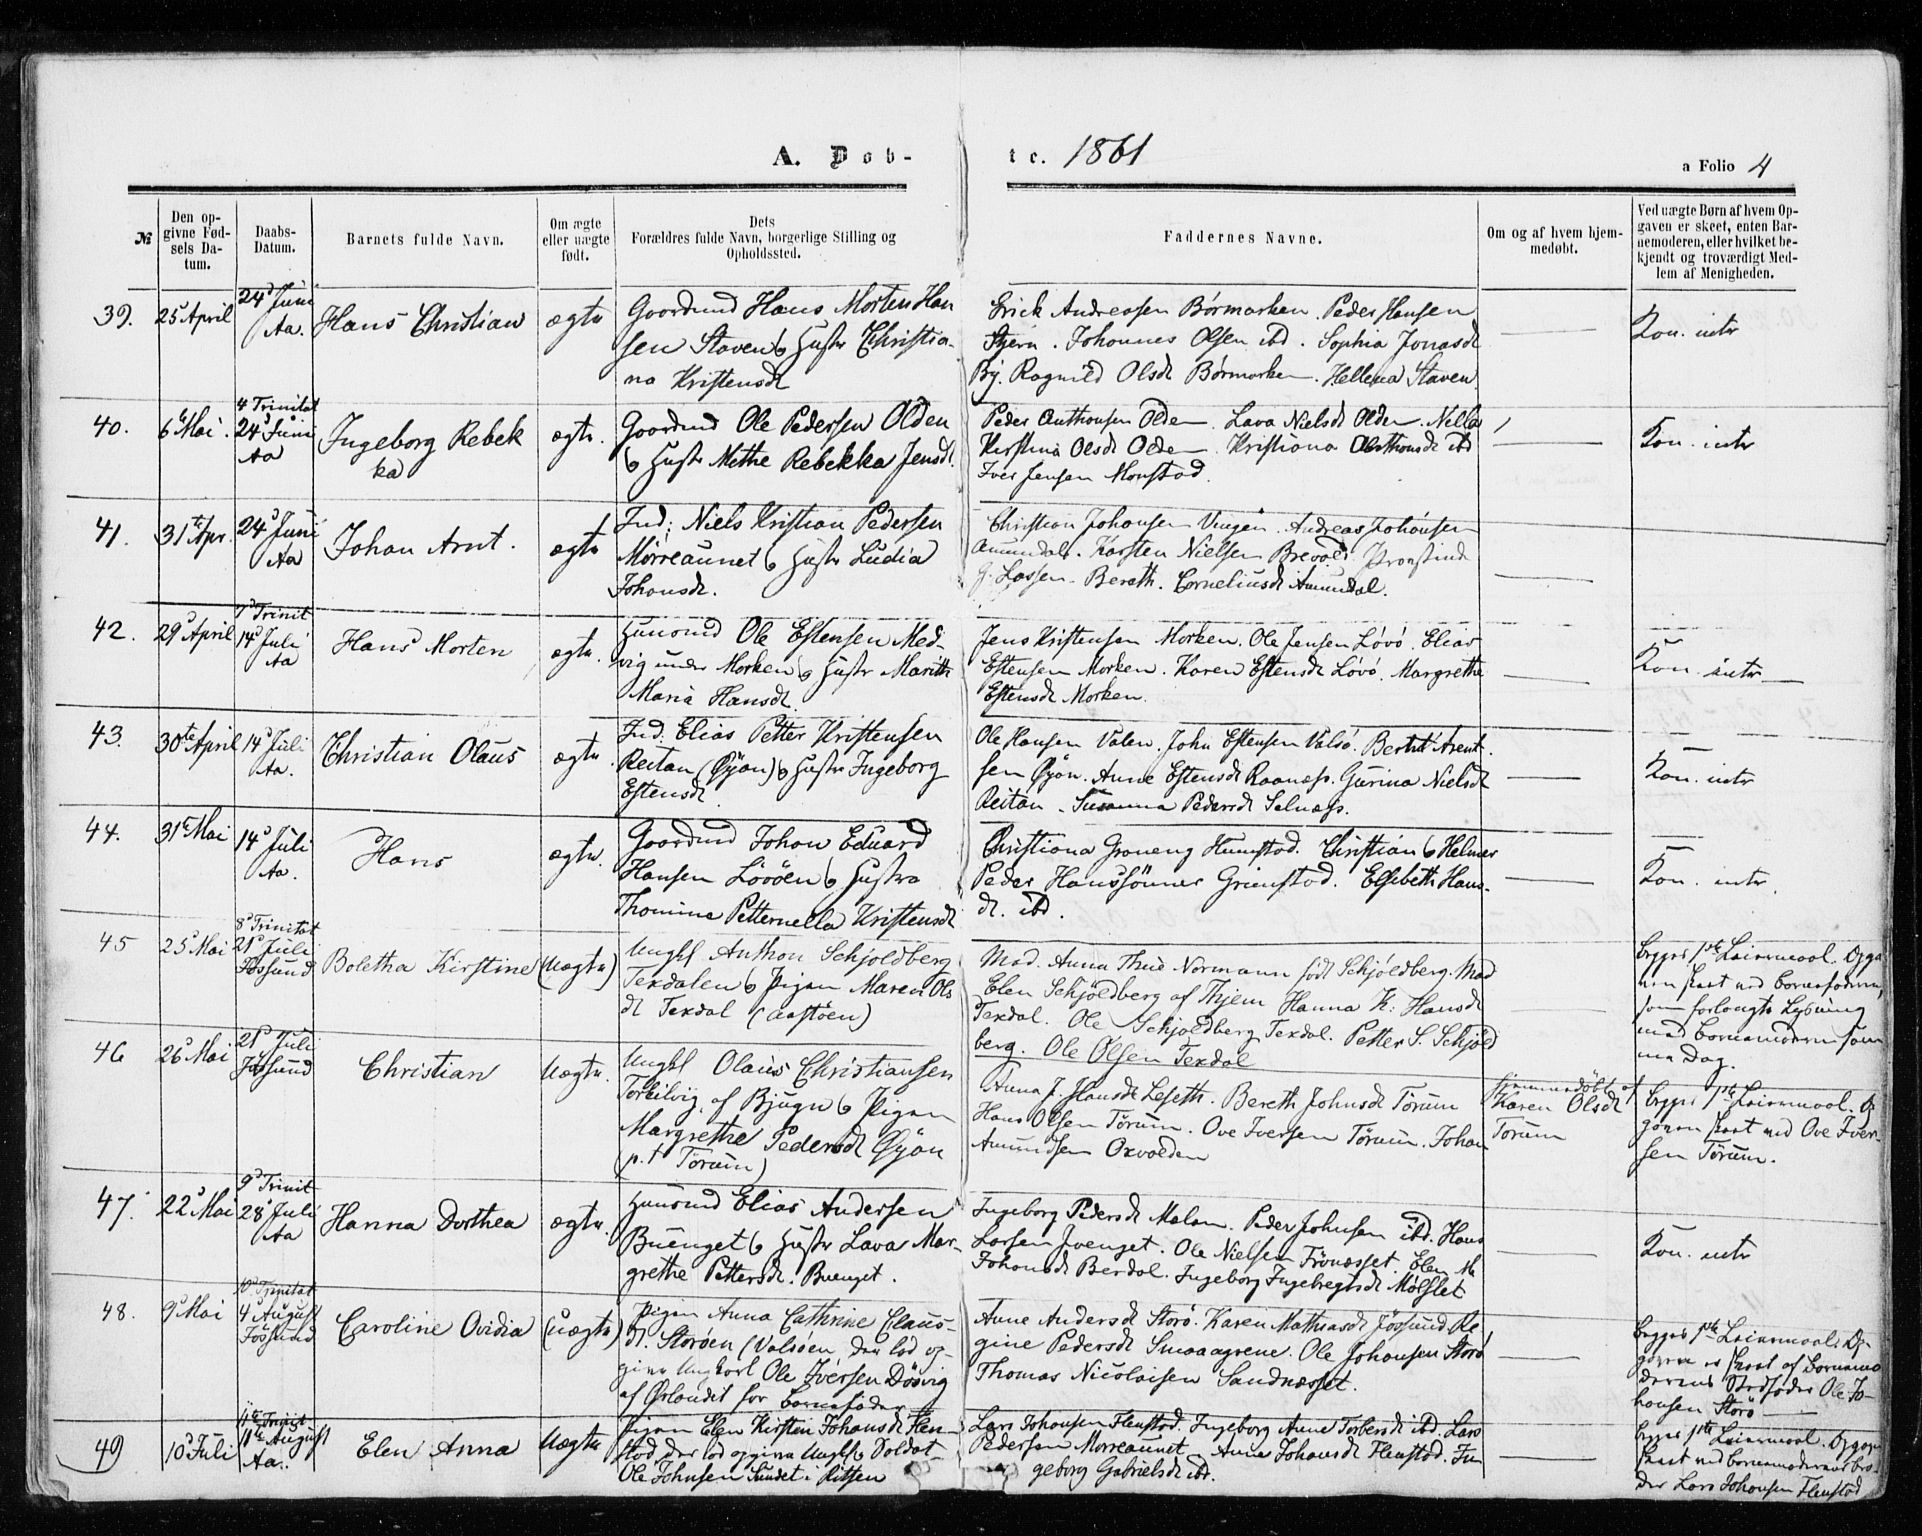 A. Døb-
te. 1861
a Folio 4
№
Den op-
givne Fød-
sels Da-
tum.
Daabs-
Datum.
Barnets fulde Navn.
Om ægte
eller uægte
født.
Dets
Forældres fulde Navn, borgerlige Stilling og
Opholdssted.
Faddernes Navne.
Om og af hvem hjem-
medøbt.
Ved uægte Børn af hvem Op-
gaven er skeet, enten Bar-
nemoderen, eller hvilket be-
kjendt og troværdigt Med-
lem af Menigheden.
39.
25 April
24d Juni
Aa.
Hans Christian
ægte
Gaardmd Hans Morten Han
sen Staven & Hustr Christia-
na Kristensdt
Erick Andreasen Børmarken. Peder Hansen
Stjern. Johannes Olsen ibd. Sophia Jonasdt
By. Ragnild Olsdt Børmarken. Hellena Staven
Kon. intr
40.
6te Mai.
4 Trinitat
24d Juni
Aa
Ingeborg Rebek
ka
ægte.
Gaardmd Ole Pedersen Olden
& Hustr Methe Rebekka Jensdt.
Peder Anthonsen Olden. Lava Nielsdt Olden. Nella
Kirstina Olsdt Olden. Kristiana Anthonsdt ibd
Iver Jensen Monstad.
Kon. intr
41.
31te Apr.
24d Juni
Aa
Johan Arnt.
ægte
Ind: Niels Kristian Pedersen
Mørreaunet & Hustr Ludia
Johansdt.
Christian Johansen Vingen. Andreas Johansen
Amundal. Karsten Nielsen Brevold.
G. Lassen. Bereth. Corneliusdt Amundal.
42.
29d April
7d Trinit
14d Juli
Aa
Hans Morten
ægte.
Husmd Ole Estensen Med-
vig under Morken & Hustr Marith
Maria Hansdt.
Jens Kristensen Morken. Ole Jensen Løvø. Elias
Estensen Morken. Karen Estensdt Løvø. Margrethe
Estensdt Morken.
Kon. intr
43.
30te April
14d Juli
Aa.
Christian Olaus
ægte.
Ind. Elias Petter Kristensen
Reitan (Øyan) & Hustr Ingeborg
Estensdt
Ole Hansen Valen. John Estensen Valsø. Berthil Arent
sen Øyan. Anne Estensdt Raanæss. Gurina Nielsdt
Reitan. Susanna Pedersdt Selnæs.
Kon. intr
44.
31te Mai
14d Juli
Aa.
Hans
ægte.
Gaardmd Johan Eduard
Hansen Løvøen & Hustru
Thomine Petternella Kristensdt
Christiana Graneng Humstad. Christian & Helmer
Peder Hanssønner Grimstad. Elsebeth Hans-
dt. ibd.
Kon. intr.
45
25 Mai
8d Trinitat
21d Juli
Jøssund
Boletha Kirstine
(Uægte)
Ungkl Anthon Schjoldberg
Texdalen & Pigen Maren Ols
dt Texdal (Aastøen)
Mad. Anna Thue Normann født Schjøldberg. Mad
Elen Schjöldberg af Thjem Hanna K: Hansdt
Texdal. Ole Schjoldberg Texdal. Petter S. Schjöld
berg. Ole Olsen Texdal
Begges 1ste Leiermaal. Opga
ven skeet ved Barnefaderen,
som forlangte Lysning
med Barnemoderen sam
me Dag.
46
26d Mai
21d Juli
Jøssund
Christian
Uægte.
Ungkl Olaus Christiansen
Torkilvig af Bjugn & Pigen
Margrethe Pedersdt Øyan
(p. t Tørum)
Anna J. Hansdt Leseth. Bereth Johnsdt Tørum
Hans Olsen Tørum. Ove Iversen Tørum. Johan
Amundsen Oxvolden
Hjemmedøbt af
Karen Olsdt
Tørum
Begges 1ste Leiermaal. Op
gaven skeet ved Ove Iver-
sen Tørum.
47.
22d Mai
9d Trinit
28d Juli
Aa
Hanna Dorthea
ægte.
Husmd Elias Andersen
Buenget & Hustr Lava Mar-
grethe Pettersdt. Buenget.
Ingeborg Pedersdt Malam. Peder Johnsen ibd. Hans
Larsen Ivenget. Ole Nielsen Trönæsset. Elen M
Johansdt Berdal. Ingeborg Ingebregtsdt Mølslet
Kon. intr
48.
9d Mai
10d Trinitat
4d August
Jøssund
Caroline Ovidia
(Uægte)
Pigen Anna Cathrine Claus-
dt. Storøen (Valsøen der lod op-
give Ungkarl Ole Iversen Døsvig
af Ørlandet for Barnefader
Anne Andersdt Storø. Karen Mathiasdt Jøssund. Re-
gine Pedersdt Smaaagrene. Ole Johansen Storø
Thomas Nicolaisen Sandnæsset.
Begges 1ste Leiermaal. Op-
gaven er skeet af Barnemo
derens Stedfader Ole Jo-
hansen Storø
49
10d Juli
11te Trinit
11te August
Aa.
Elen Anna
Uægte
Pigen Elen Kirsten Johansdt Flen
stad, der lod opgive Ungkl & Soldat
Ole Johnsen Sundet i Ritsen
Lars Johansen Flenstad. Ingeborg Anne Torbersdt ibd. Lars
Pedersen Morreaunet. Anna Johansdt Flenstad. In
geborg Gabrielsdt ibd.
Begges 1ste Leiermaal. Opgaven
skeet ved Barnemoderens Bro-
der Lars Johansen Flenstad